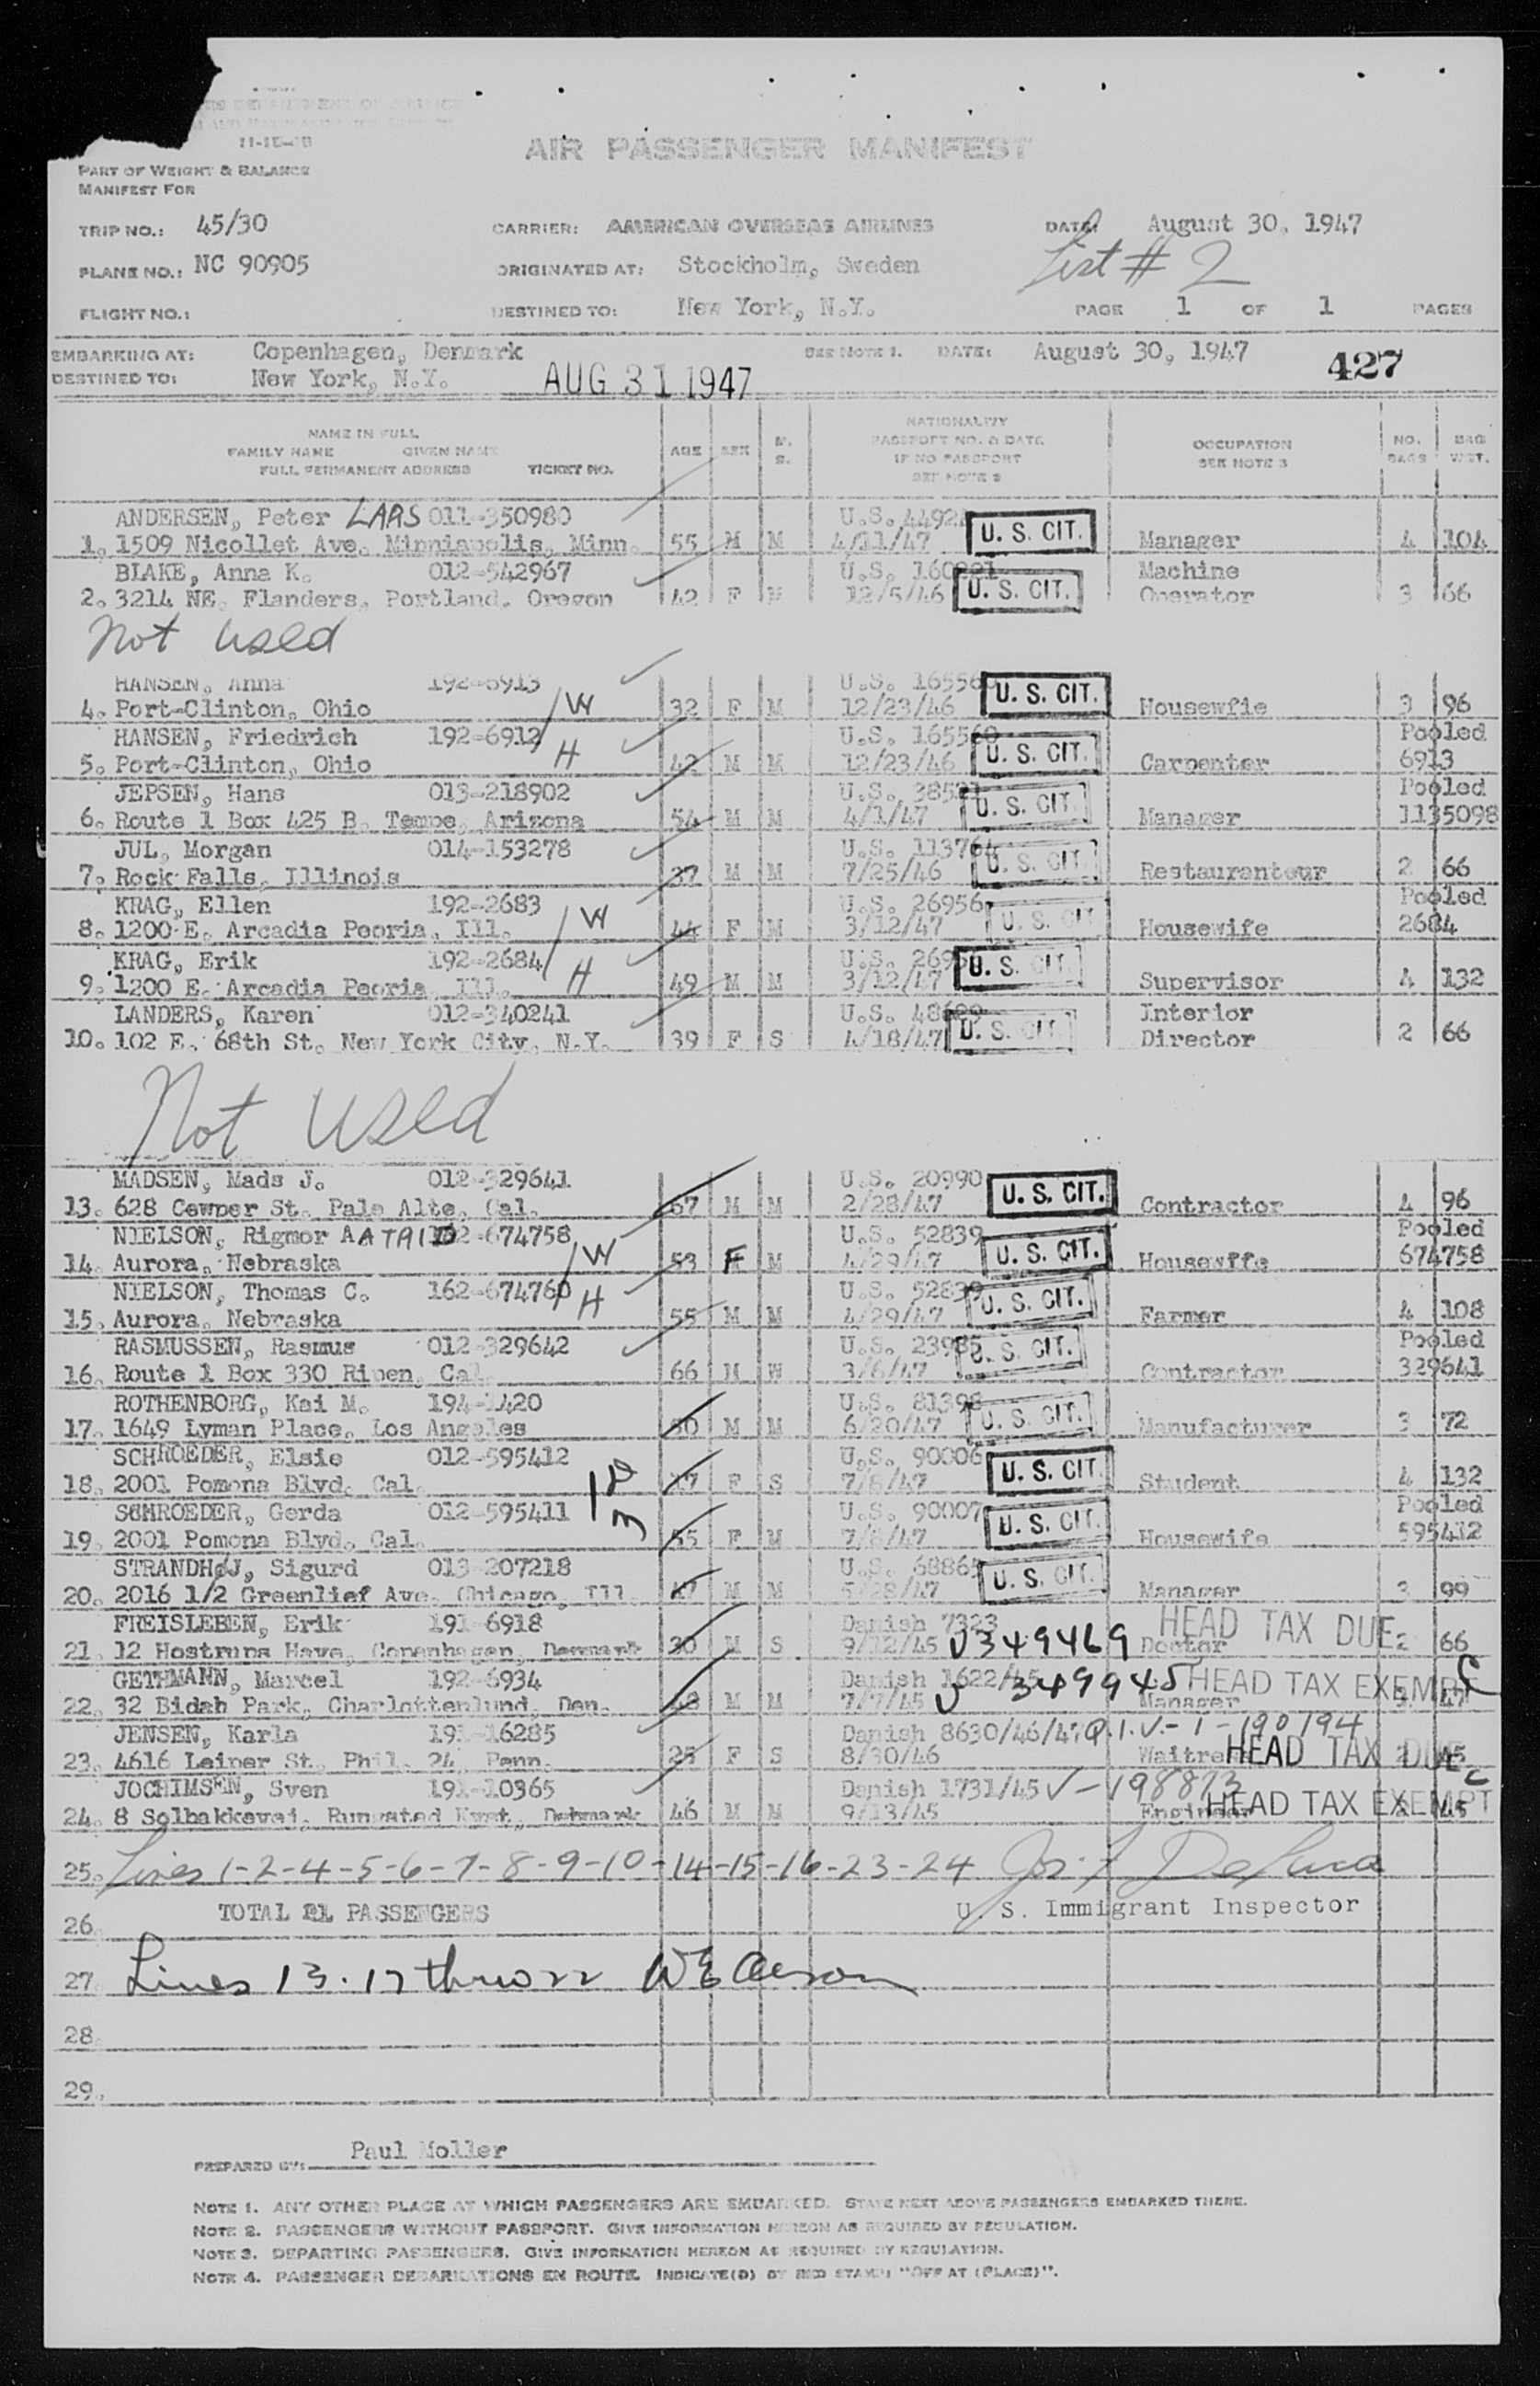 11-15-
AIR PASSENGER MANIFEST
PART OF WEIGHT & BALANCE
MANIFEST FOR
TRIP NO.: 45/30 CARRIER: AMERICAN OVERSEAS AIRLINES DATE: August 30, 1947
List # 2
PLANE NO.: NC 90905 ORIGINATED AT: Stockholm, Sweden
FLIGHT NO.: DESTINED TO: New York, N.Y. PAGE 1 OF 1 PAGES
EMBARKING AT: Copenhagen, Denmark SEE NOTE 1. DATE: August 30, 1947 427
DESTINED TO: New York, N.Y. AUG 31 1947
NAME IN FULL
FAMILY NAME GIVEN NAME
FULL PERMANENT ADDRESS TICKET NO. AGE SEX M. S. NATIONALITY PASSPORT NO. & DATE IF NO PASSPORT SEE NOTE 2 OCCUPATION SEE NOTE 3 NO. BAGS BAG WGT.
ANDERSEN, Peter LARS 011-350980 U.S. 4492
1. 1509 Nicollet Ave. Minniapolis, Minn. 55 M M 4/11/47 U. S. CIT. Manager 4 104
BLAKE, Anna K. 012-542967 U.S. 160 Machine
2. 3214 NE. Flanders, Portland, Oregon 42 F M 12/5/46 U. S. CIT. Operator 3 66
Not used
HANSEN, Anna 192-6913 U.S. 16556
4. Port-Clinton, Ohio W 32 F M 12/23/46 U. S. CIT. Housewfie 3 96
HANSEN, Friedrich 192-6912 U.S. 16556 Pooled
5. Port-Clinton, Ohio H 42 M M 12/23/46 U. S. CIT. Carpenter 6913
JEPSEN, Hans 013-218902 U.S. 385 Pooled
6. Route 1 Box 425 B. Tempe, Arizona 54 M M 4/1/47 U. S. CIT. Manager 1135098
JUL, Morgan 014-153278 U.S. 113764
7. Rock Falls, Illinois 37 M M 7/25/46 U. S. CIT. Restauranteur 2 66
KRAG, Ellen 192-2683 U.S. 26956 Pooled
8. 1200 E. Arcadia Peoria, Ill. W 44 F M 3/12/47 U. S. CIT Housewife 2684
KRAG, Erik 192-2684 U.S. 269
9. 1200 E. Arcadia Peoria, Ill. H 49 M M 3/12/47 U. S. CIT. Supervisor 4 132
LANDERS, Karen 012-340241 U.S. 48 Interior
10. 102 E. 68th St. New York City, N.Y. 39 F S 4/18/47 U. S. CIT. Director 2 66
Not used
MADSEN, Mads J. 012-329641 U.S. 20990
13. 628 Cowper St. Palo Alto, Cal. 67 M M 2/28/47 U. S. CIT. Contractor 4 96
NIELSON, Rigmor 162-674758 U.S. 52839 Pooled
14. Aurora, Nebraska W 53 F M 4/29/47 U. S. CIT. Housewffe 674758
NIELSON, Thomas C. 162-674760 U.S. 52839
15. Aurora, Nebraska H 55 M M 4/29/47 U. S. CIT. Farmer 4 108
RASMUSSEN, Rasmus 012-329642 U.S. 23985 Pooled
16. Route 1 Box 330 Ripen, Cal. 66 M W 3/6/47 U. S. CIT. Contractor 329641
ROTHENBORG, Kai M. 194-1420 U.S. 81398
17. 1649 Lyman Place, Los Angeles 50 M M 6/20/47 U. S. CIT. Manufacturer 3 72
SCHROEDER, Elsie 012-595412 U.S. 90006
18. 2001 Pomona Blvd. Cal. D 17 F S 7/8/47 U. S. CIT. Student 4 132
SCHROEDER, Gerda 012-595411 U.S. 90007 Pooled
19. 2001 Pomona Blvd. Cal. M 55 F M 7/8/47 U. S. CIT. Housewife 595412
STRANDHøJ, Sigurd 013-207218 U.S. 68865
20. 2016 1/2 Greenlief Ave. Chicago, Ill. 47 M M 5/28/47 U. S. CIT. Manager 3 99
FREISLEBEN, Erik 191-6918 Danish 7323 HEAD TAX DUE
21. 12 Hostrups Have, Copenhagen, Denmark 30 M S 9/12/45 V349469 Doctor 2 66
GETHMANN, Marcel 192-6934 Danish 1622/45 HEAD TAX EXEMPT
22. 32 Bidah Park, Charlottenlund, Den. 48 M M 7/7/45 V 349945 Manager 47
JENSEN, Karla 191-16285 Danish 8630/46/47 Q.I.V.-1-190194
23. 4616 Leiper St. Phil. 24, Penn. 25 F S 8/30/46 Waitress HEAD TAX DUE 45
JOCHIMSEN, Sven 191-10365 Danish 1731/45 V-198873
24. 8 Solbakkevej, Rungsted Kyst, Denmark 46 M M 9/13/45 Engineer HEAD TAX EXEMPT 45
25. Lines 1-2-4-5-6-7-8-9-10-14-15-16-23-24 Jos. F. DeLuca
26. TOTAL 21 PASSENGERS U. S. Immigrant Inspector
27. Lines 13.17 thru 22
28.
29.
PREPARED BY: Paul Moller
NOTE 1. ANY OTHER PLACE AT WHICH PASSENGERS ARE EMBARKED. STATE NEXT ABOVE PASSENGERS EMBARKED THERE.
NOTE 2. PASSENGERS WITHOUT PASSPORT. GIVE INFORMATION HEREON AS REQUIRED BY REGULATION.
NOTE 3. DEPARTING PASSENGERS. GIVE INFORMATION HEREON AS REQUIRED BY REGULATION.
NOTE 4. PASSENGER DEBARKATIONS EN ROUTE. INDICATE(D) BY RED STAMP "OFF AT (PLACE)".